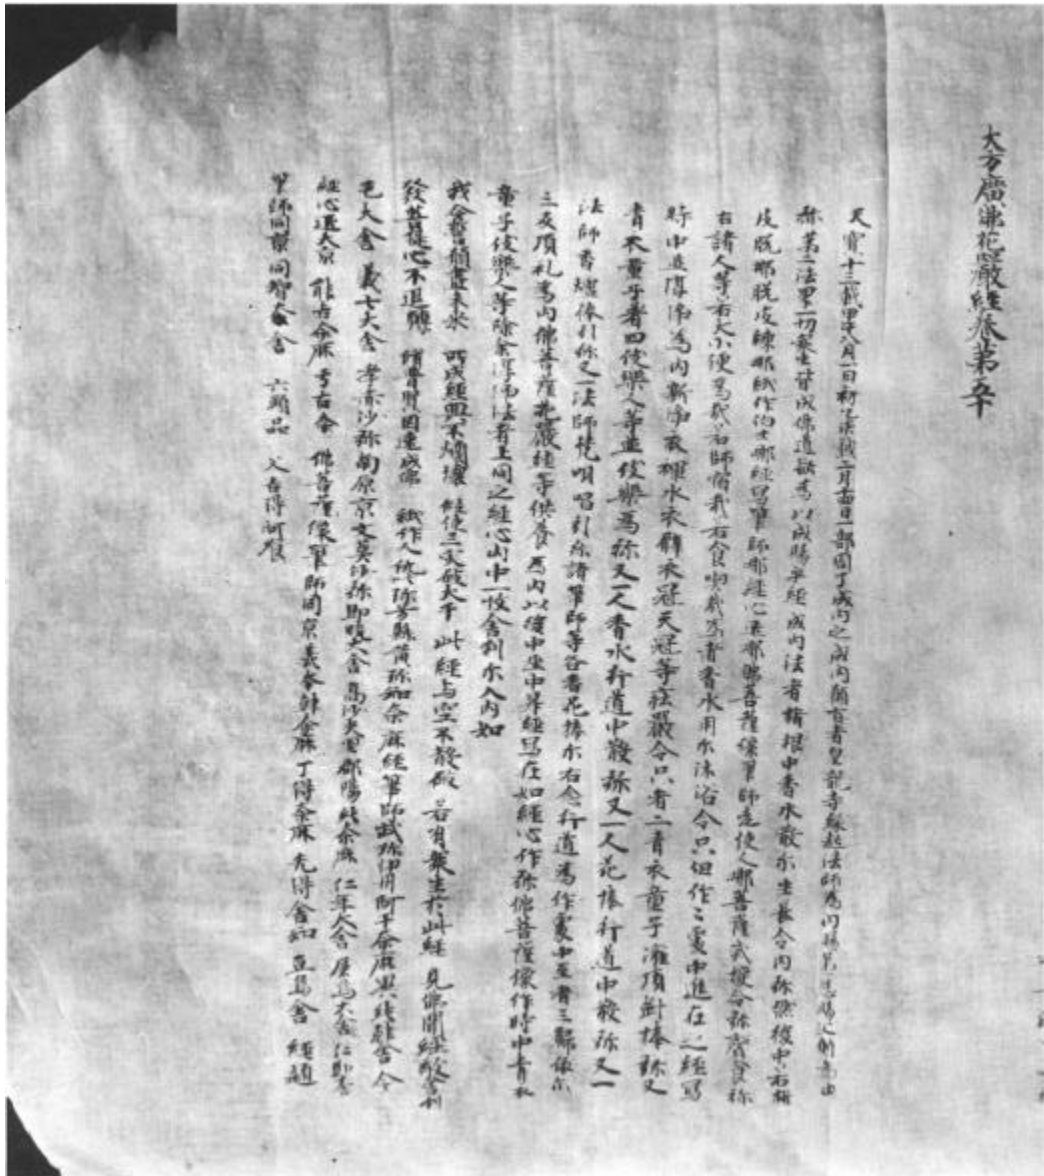 大方廣佛花嚴經卷第五十
天寶十三載甲午八月一日初乙未載二月十四日一部周了成內之成內願旨者皇龍寺緣起法師爲內賜第一恩賜父願爲內
弥第二法界一切衆生皆成佛道欲爲以成賜乎經成內法者楮根中香水散尒生長令內弥然後中若楮
皮脫那脫皮練那紙作伯士那經寫筆師那經心匠那佛菩薩像筆師走使人那菩薩戒授令弥齋食弥
右諸人等若大小便爲哉若臥宿哉若食喫哉爲者香水用尒沐浴令只但作作處中進在之經寫
時中並淳淨爲內新淨衣褌水衣臂衣冠天冠等莊嚴令只者二青衣童子灌頂針捧弥又
青衣童子着四伎樂人等並伎樂爲弥又一人香水行道中散弥又一人花捧行道中散弥又一
法師香爐捧引弥又一法師梵唄唱引弥諸筆師等各香花捧尒右念行道爲作處中至者三歸依尒
三反頂礼爲內佛菩薩花嚴經等供養爲內以後中坐中昇經寫在如經心作弥佛菩薩像作時中青衣
童子伎樂人等除余淳淨法者上同之經心內中一收舍利尒入內如
我今誓願盡未來 所成經典不爛壞 假使三灾破大千 此經与空不散破 若有衆生於此經 見佛聞經敬舍利
發菩提心不退轉 修普賢因速成佛 紙作人仇叱珍兮縣黃珍知奈麻 經筆師武珍伊州阿干奈麻 異純韓舍 今
毛大舍 義七大舍 孝赤沙弥 南原京文莫沙弥 即曉大舍 高沙夫里郡陽純奈麻 仁年大舍 屎烏大舍 仁節
經心匠大京 能吉奈麻 弓古奈 佛菩薩像筆師同京義本韓奈麻 丁得奈麻 光得舍知 豆烏舍 經題
筆師同京同智大舍 六頭品 父吉得阿飡